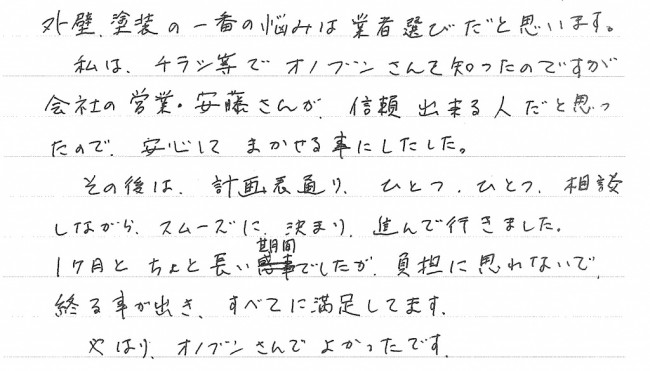 外壁、塗装の一番の悩みは業者選びだと思います。
私は、チラシ等でオノブンさんを知ったのですが
会社の営業・安藤さんが、信頼出来る人だと思っ
たので、安心して まかせる事にしたした。
その後は、計画表通り、ひとつ、ひとつ、相談
しながら、スムーズに、決まり、進んで行きました。
1ヶ月と ちょと長い期間でしたが、負担に思れないで、
終る事が出き、すべてに満足してます、
やはり、オノブンさんで よかったです、